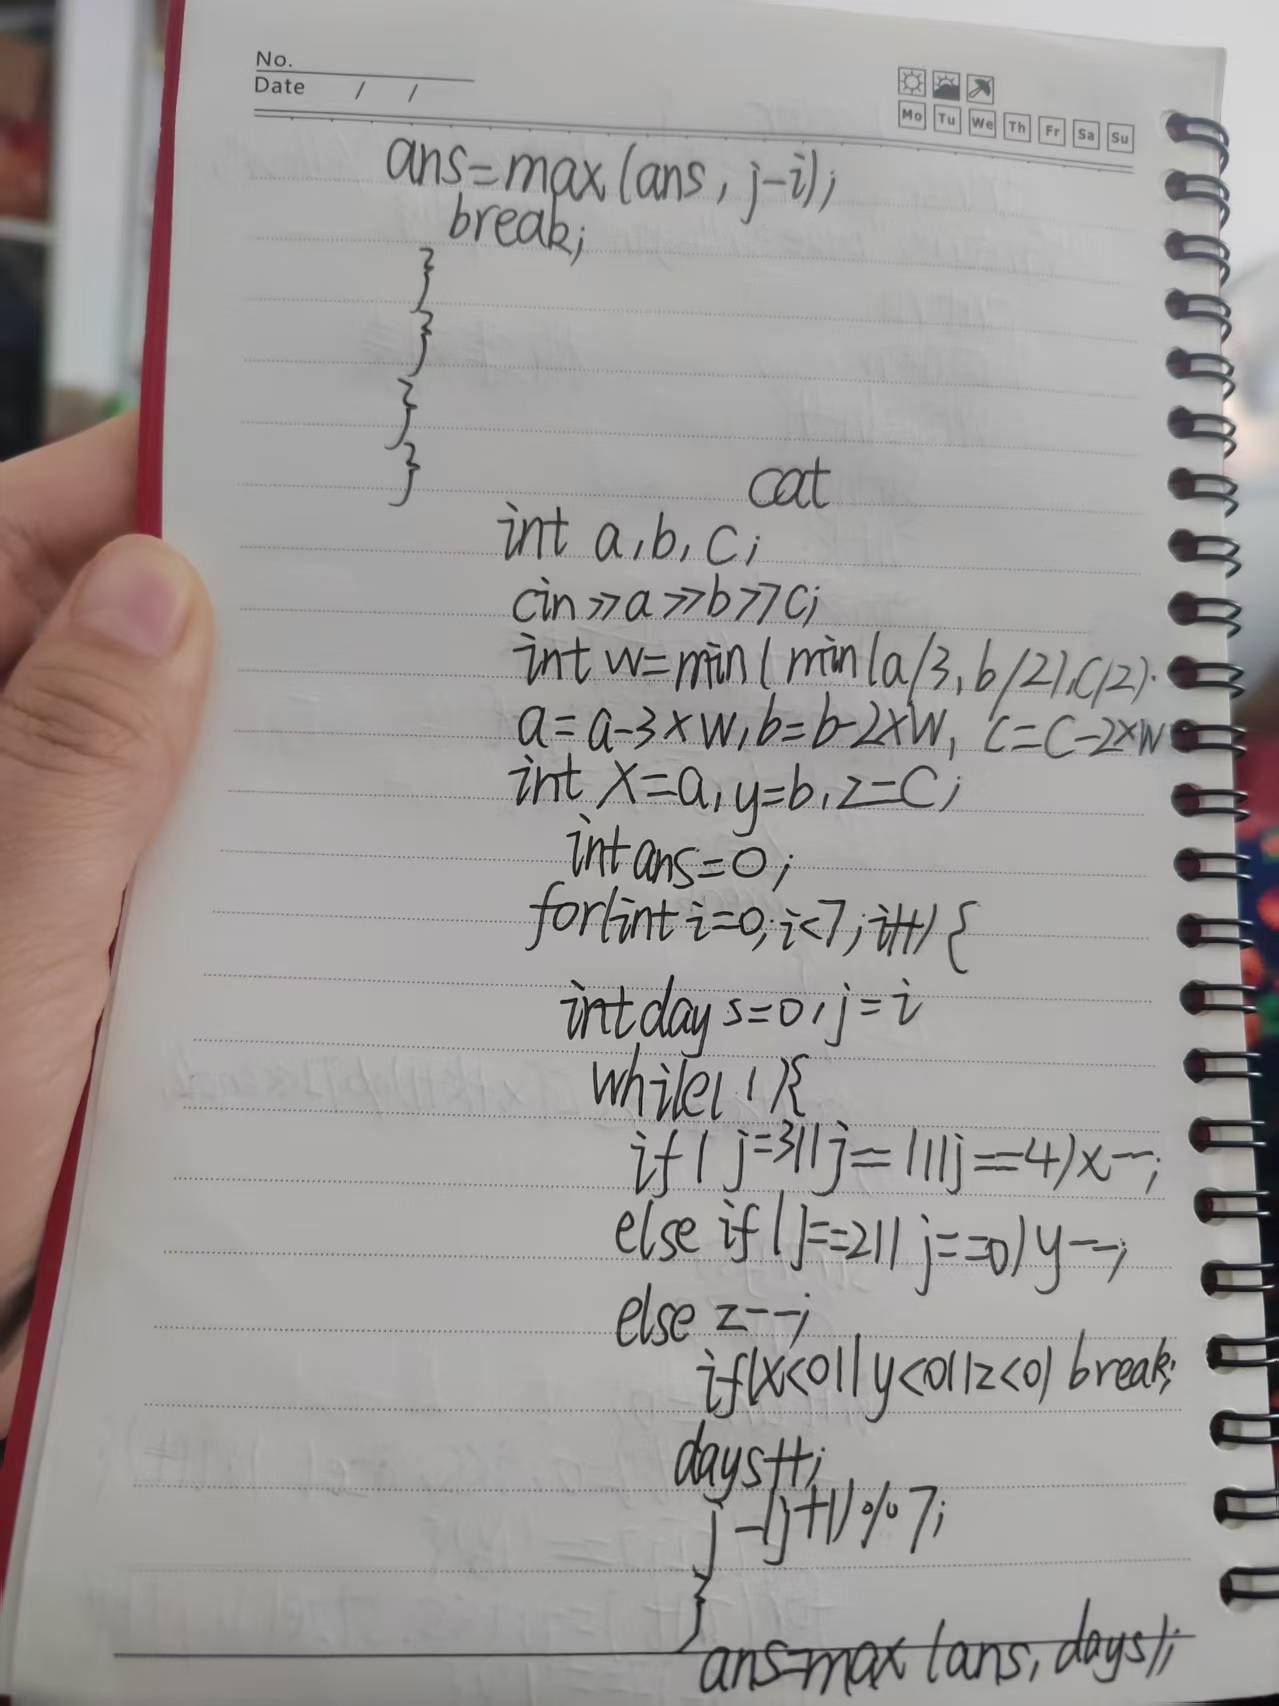 No.
Date / /
Mo Tu We Th Fr Sa Su
ans=max(ans, j-i);
break;
}
}
}
}
cat
int a,b,c;
cin>>a>>b>>c;
int w=min(min(a/3,b/2),c/2).
a=a-3×w,b=b-2×w, c=c-2×w
int x=a,y=b,z=c;
int ans=0;
for(int i=0;i<7;i++){
int days=0,j=i
while(1){
if(j=3||j==1||j==4)x--;
else if(j==2||j==0)y--;
else z--;
if(x<0||y<0||z<0) break;
days++;
j=(j+1)%7;
}
ans=max(ans,days);